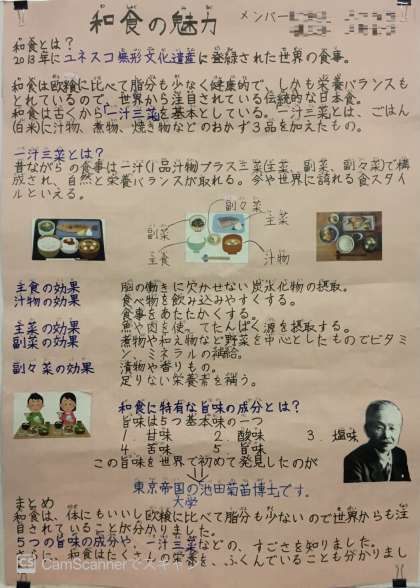 和食の魅力
メンバー
和食とは？
2013年にユネスコ無形文化遺産に登録された世界の食事。
和食は欧米に比べて脂分も少なく健康的で、しかも栄養バランスも
とれているので、世界から注目されている伝統的な日本食。
和食は古くから「一汁三菜」を基本としている。一汁三菜とは、ごはん
(白米)に汁物、煮物、焼き物などのおかず3品を加えたもの。
一汁三菜とは？
昔ながらの食事は二汁(1品汁物)プラス三菜(主菜、副菜、副々菜)で構
成され、自然と栄養バランスが取れる。今や世界に誇れる食スタイ
ルといえる。
副々菜
主菜
副菜
主食
汁物
主食の効果 脳の働きに欠かせない炭水化物の摂取。
汁物の効果 食べ物を飲み込みやすくする。
食事をあたたかくする。
主菜の効果 魚や肉を使ってたんぱく源を摂取する。
副菜の効果 煮物や和え物など野菜を中心としたものでビタミ
ン、ミネラルの補給。
副々菜の効果 漬物や香りもの。
足りない栄養素を補う。
和食に特有な旨味の成分とは？
旨味は5つ基本味の一つ
1. 甘味 2. 酸味 3. 塩味
4. 苦味 5. 旨味
この旨味を世界で初めて発見したのが
東京帝国の池田菊苗博士です。
大学
まとめ
和食は、体にもいいし欧米に比べて脂分も少ないので世界からも注
目されていることが分かりました。
5つの旨味の成分や、一汁三菜などの、すごさを知りました。
さらに、和食はたくさんの栄養を、ふくんでいることも分かりまし
CS CamScannerでスキャン